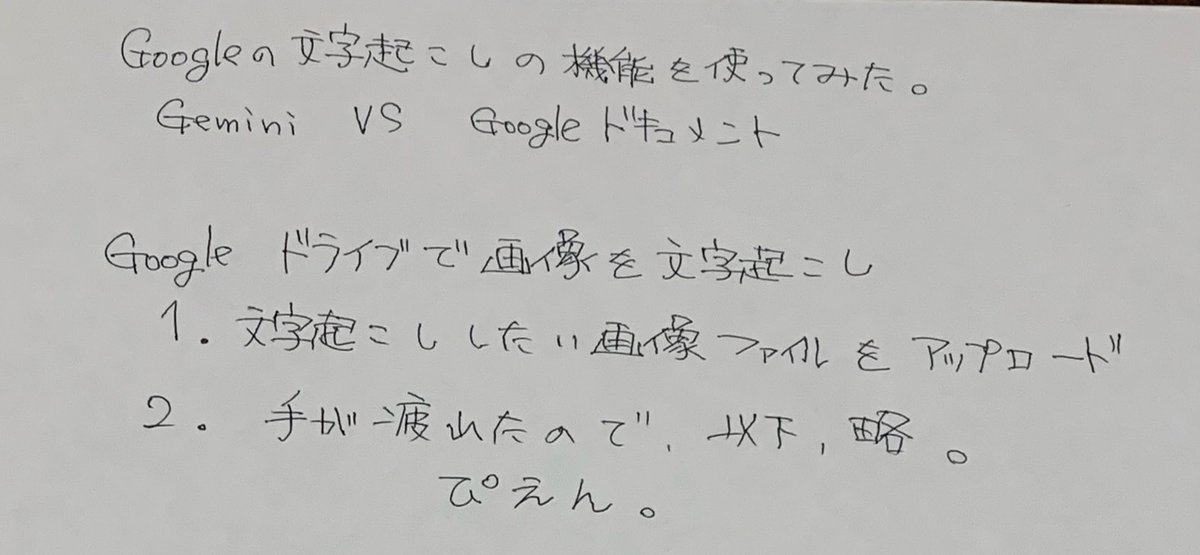 Googleの文字起こしの機能を使ってみた。
Gemini VS Googleドキュメント
Google ドライブで画像を文字起こし
1. 文字起こししたい画像ファイルをアップロード
2. 手が疲れたので、以下、略。
ぴえん。